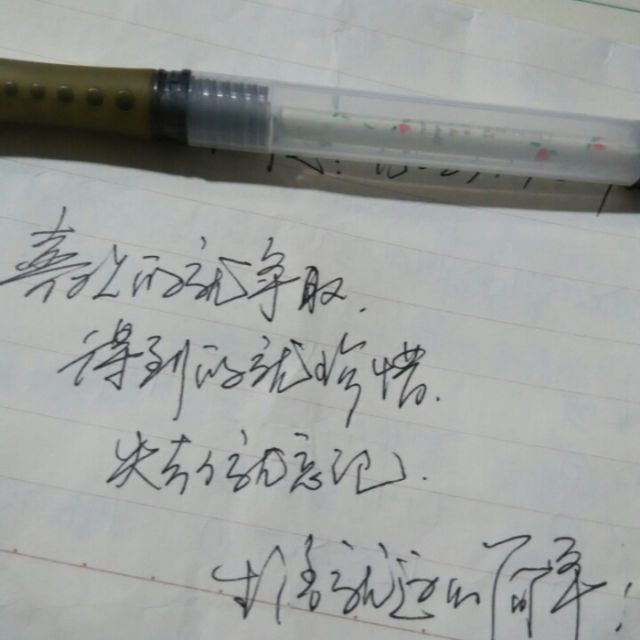 喜欢的就争取.
得到的就珍惜.
失去了就忘记.
生活就这么简单!